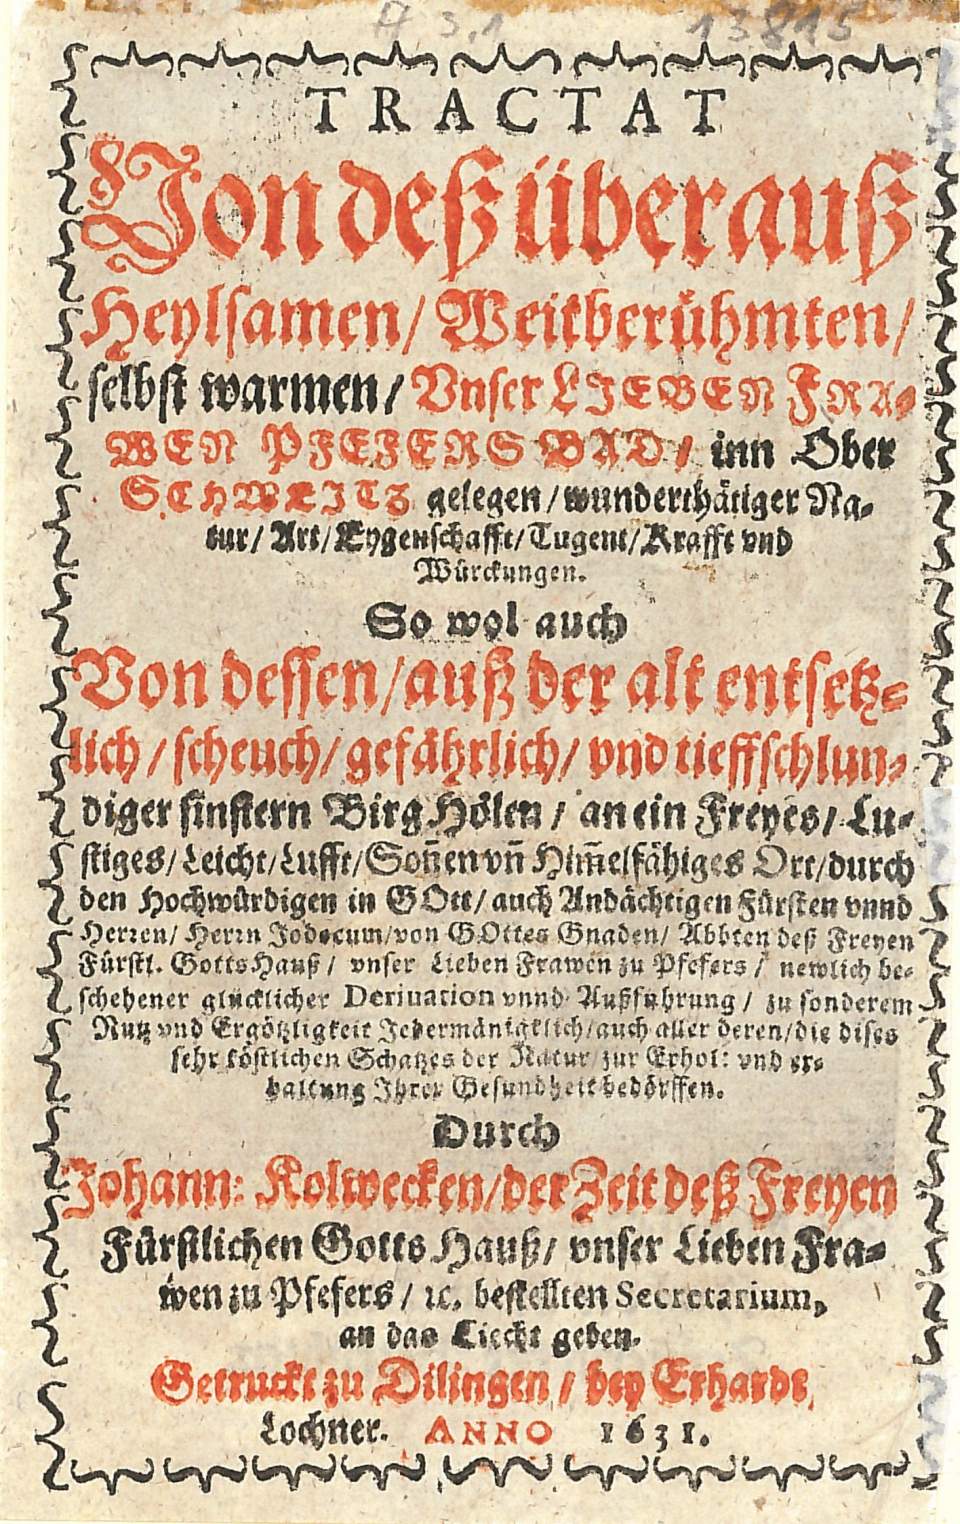 A 3.1 13815
TRACTAT
Von deß überauß
Heylsamen/ Weitberühmten/
selbst warmen/ Vnser LIEBEN FRA-
WEN PFEFERS BAD/ inn Ober
SCHWEITZ gelegen/ wunderthätiger Na-
tur/ Art/ Eygenschafft/ Tugent/ Krafft vnd
Würckungen.
So wol auch
Von dessen/ auß der alt entsetz-
lich/ scheuch/ gefährlich/ vnd tieffschlun-
diger finstern Birg Hölen/ an ein Freyes/ Lu-
stiges/ Leicht/ Lufft/ Soñen vñ Him̃elfähiges Ort/ durch
den Hochwürdigen in GOtt/ auch Andächtigen Fürsten vnnd
Herzen/ Herzn Jodocum/ von GOttes Gnaden/ Abbten deß Freyen
Fürstl. GottsHauß/ vnser Lieben Frawen zu Pfefers/ newlich be-
schehener glücklicher Deriuation vnnd Außführung/ zu sonderem
Nutz vnd Ergötzligkeit Jedermänigklich/ auch aller deren/ die dises
sehr köstlichen Schatzes der Natur/ zur Erhol: vnd er-
haltung Ihrer Gesundheit bedörffen.
Durch
Johann: Kolwecken/ der Zeit deß Freyen
Fürstlichen Gotts Hauß/ vnser Lieben Fra-
wen zu Pfefers/ ꝛc. bestellten Secretarium,
an das Liecht geben.
Getruckt zu Dilingen/ bey Erhardt
Lochner. ANNO 1631.